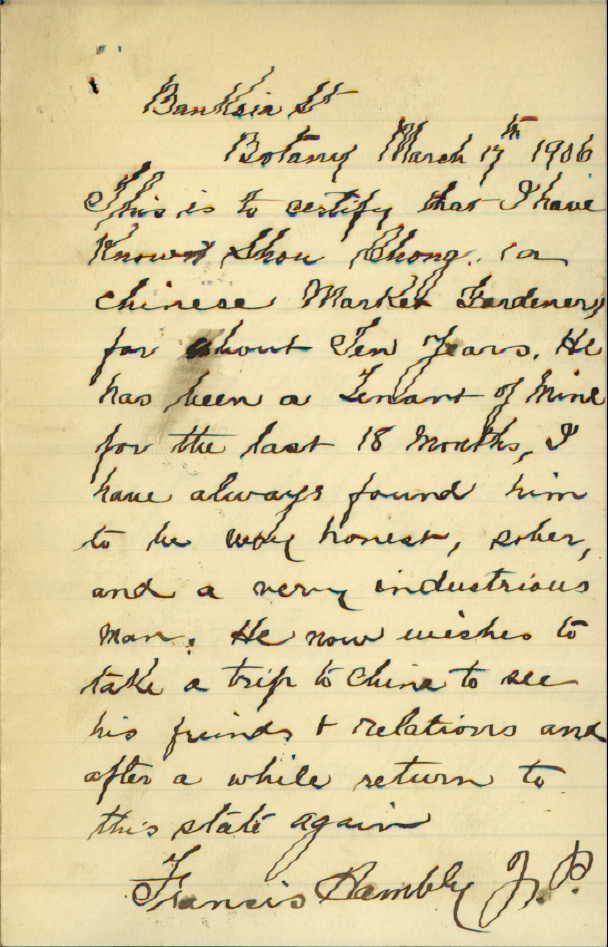 Banksia St
Botany March 17th 1906
This is to certify that I have
Known Shou Chong. a
Chinese Market Gardener,
for about Ten Years. He
has been a Tenant of Mine
for the last 18 Months, I
have always found him
to be very honest, sober,
and a very industrious
Man. He now wishes to
take a trip to China to see
his friends & relations and
after a while return to
this state again
Francis Hambly J.P.